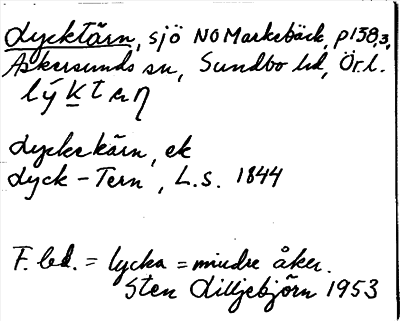 Lycktärn, sjö NO Markebäck, p138,3,
Askersunds sn, Sundbo hd, Ör.l.
lýktæɳ
Lyckekärn, ek
Lyck-Tern, L.S. 1844
F. led. = lycka = mindre åker.
Sten Lilljebjörn 1953